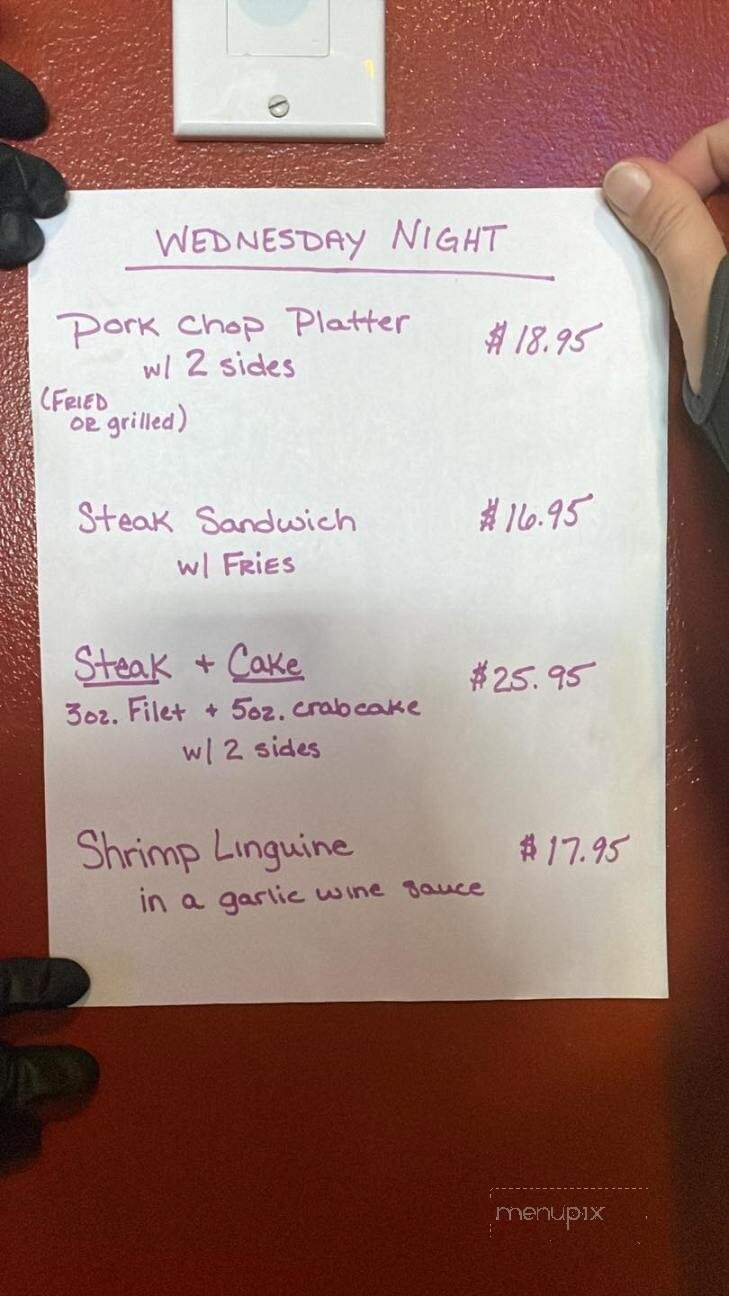 WEDNESDAY NIGHT
Pork Chop Platter $18.95
w/ 2 sides
(FRIED
OR grilled)
Steak Sandwich $16.95
w/ FRIES
Steak + Cake $25.95
3oz. Filet + 5oz. crabcake
w/ 2 sides
Shrimp Linguine $17.95
in a garlic wine sauce
menupix